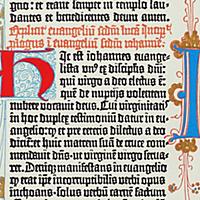 gno: et erant semper in templo laudā-
tes et benedicentes deum amen.
Explicit euangeliū scd̄m lucā Incipit
prologus in euangeliū scd̄m iohannē.
Hic est iohannes euange-
lista un⁹ ex discipulis dn̄i:
qui virgo a deo electus ē:
quē de nuptijs volentem
nubere vocauit deus. Cui virginitatis
in hoc duplex testimoniū datur in eu-
angelio: q̄ et pre ceteris dilectus a deo
dicit̄ et huic matrem suā de cruce com-
mendauit dn̄s: ut virginē virgo serua-
ret. Deniq̄ manifestans in euangelio
q̄ erat ip̄e incorruptibilis verbi opus
inchoans: solus verbum carnē factum